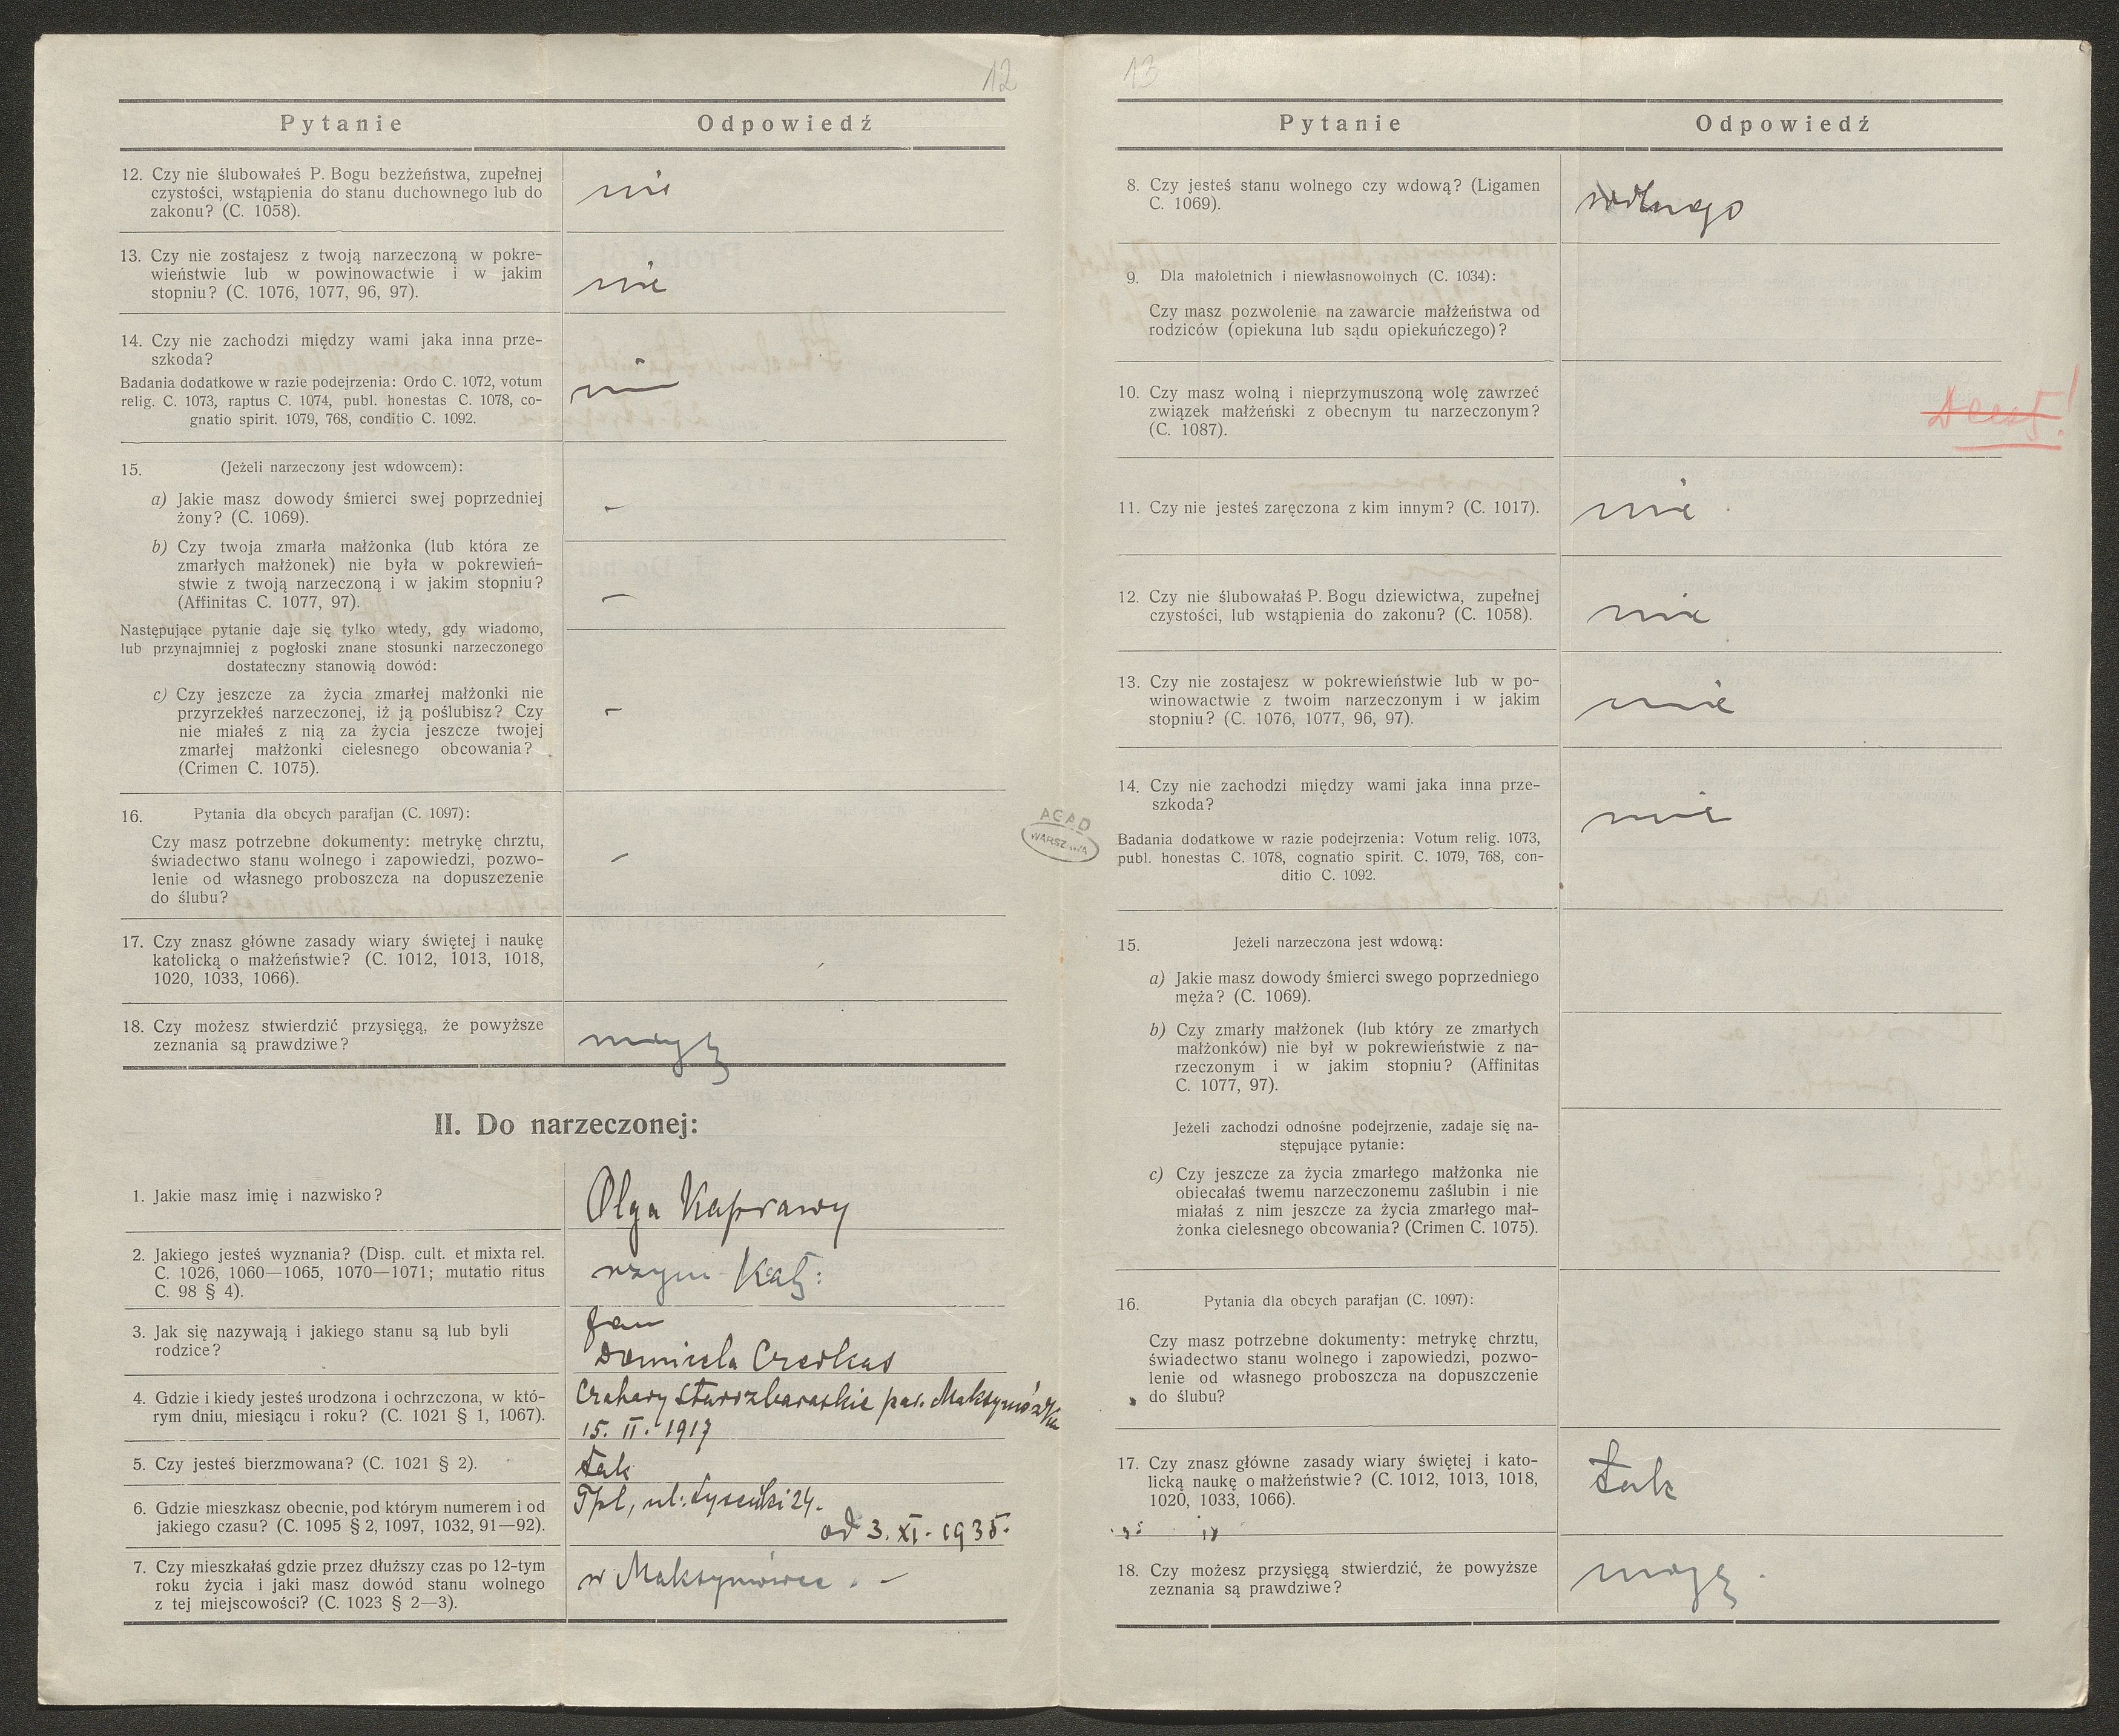 12
Pytanie Odpowiedź
12. Czy nie ślubowałeś P. Bogu bezżeństwa, zupełnej
czystości, wstąpienia do stanu duchownego lub do
zakonu? (C. 1058).
nie
13. Czy nie zostajesz z twoją narzeczoną w pokre-
wieństwie lub w powinowactwie i w jakim
stopniu? (C. 1076, 1077, 96, 97).
nie
14. Czy nie zachodzi między wami jaka inna prze-
szkoda?
Badania dodatkowe w razie podejrzenia: Ordo C. 1072, votum
relig. C. 1073, raptus C. 1074, publ. honestas C. 1078, co-
gnatio spirit. 1079, 768, conditio C. 1092.
nie
15. (Jeżeli narzeczony jest wdowcem):
a) Jakie masz dowody śmierci swej poprzedniej
żony? (C. 1069).
–
b) Czy twoja zmarła małżonka (lub która ze
zmarłych małżonek) nie była w pokrewień-
stwie z twoją narzeczoną i w jakim stopniu?
(Affinitas C. 1077, 97).
–
Następujące pytanie daje się tylko wtedy, gdy wiadomo,
lub przynajmniej z pogłoski znane stosunki narzeczonego
dostateczny stanowią dowód:
c) Czy jeszcze za życia zmarłej małżonki nie
przyrzekłeś narzeczonej, iż ją poślubisz? Czy
nie miałeś z nią za życia jeszcze twojej
zmarłej małżonki cielesnego obcowania?
(Crimen C. 1075).
–
16. Pytania dla obcych parafjan (C. 1097):
Czy masz potrzebne dokumenty: metrykę chrztu,
świadectwo stanu wolnego i zapowiedzi, pozwo-
lenie od własnego proboszcza na dopuszczenie
do ślubu?
–
17. Czy znasz główne zasady wiary świętej i naukę
katolicką o małżeństwie? (C. 1012, 1013, 1018,
1020, 1033, 1066).
18. Czy możesz stwierdzić przysięgą, że powyższe
zeznania są prawdziwe?
mogę
II. Do narzeczonej:
1. Jakie masz imię i nazwisko?
Olga Kaprawy
2. Jakiego jesteś wyznania? (Disp. cult. et mixta rel.
C. 1026, 1060—1065, 1070—1071; mutatio ritus
C. 98 § 4).
rzym kat:
3. Jak się nazywają i jakiego stanu są lub byli
rodzice?
Jan
Domicela Czerkas
4. Gdzie i kiedy jesteś urodzona i ochrzczona, w któ-
rym dniu, miesiącu i roku? (C. 1021 § 1, 1067).
Czahary Starozbaraskie par. Maksymówka
15. II. 1917
5. Czy jesteś bierzmowana? (C. 1021 § 2).
tak
6. Gdzie mieszkasz obecnie, pod którym numerem i od
jakiego czasu? (C. 1095 § 2, 1097, 1032, 91—92).
Tpl, ul: Łysenki 24.
od 3. XI. 1935.
7. Czy mieszkałaś gdzie przez dłuższy czas po 12-tym
roku życia i jaki masz dowód stanu wolnego
z tej miejscowości? (C. 1023 § 2—3).
w Maksymówce. –
13
Pytanie Odpowiedź
8. Czy jesteś stanu wolnego czy wdową? (Ligamen
C. 1069).
wolnego
9. Dla małoletnich i niewłasnowolnych (C. 1034):
Czy masz pozwolenie na zawarcie małżeństwa od
rodziców (opiekuna lub sądu opiekuńczego)?
10. Czy masz wolną i nieprzymuszoną wolę zawrzeć
związek małżeński z obecnym tu narzeczonym?
(C. 1087).
Deest!
11. Czy nie jesteś zaręczona z kim innym? (C. 1017).
nie
12. Czy nie ślubowałaś P. Bogu dziewictwa, zupełnej
czystości, lub wstąpienia do zakonu? (C. 1058).
nie
13. Czy nie zostajesz w pokrewieństwie lub w po-
winowactwie z twoim narzeczonym i w jakim
stopniu? (C. 1076, 1077, 96, 97).
nie
14. Czy nie zachodzi między wami jaka inna prze-
szkoda?
Badania dodatkowe w razie podejrzenia: Votum relig. 1073,
publ. honestas C. 1078, cognatio spirit. C. 1079, 768, con-
ditio C. 1092.
nie
AGAD
WARSZAWA
15. Jeżeli narzeczona jest wdową:
a) Jakie masz dowody śmierci swego poprzedniego
męża? (C. 1069).
b) Czy zmarły małżonek (lub który ze zmarłych
małżonków) nie był w pokrewieństwie z na-
rzeczonym i w jakim stopniu? (Affinitas
C. 1077, 97).
Jeżeli zachodzi odnośne podejrzenie, zadaje się na-
stępujące pytanie:
c) Czy jeszcze za życia zmarłego małżonka nie
obiecałaś twemu narzeczonemu zaślubin i nie
miałaś z nim jeszcze za życia zmarłego mał-
żonka cielesnego obcowania? (Crimen C. 1075).
16. Pytania dla obcych parafjan (C. 1097):
Czy masz potrzebne dokumenty: metrykę chrztu,
świadectwo stanu wolnego i zapowiedzi, pozwo-
lenie od własnego proboszcza na dopuszczenie
do ślubu?
17. Czy znasz główne zasady wiary świętej i kato-
licką naukę o małżeństwie? (C. 1012, 1013, 1018,
1020, 1033, 1066).
tak
18. Czy możesz przysięgą stwierdzić, że powyższe
zeznania są prawdziwe?
mogę